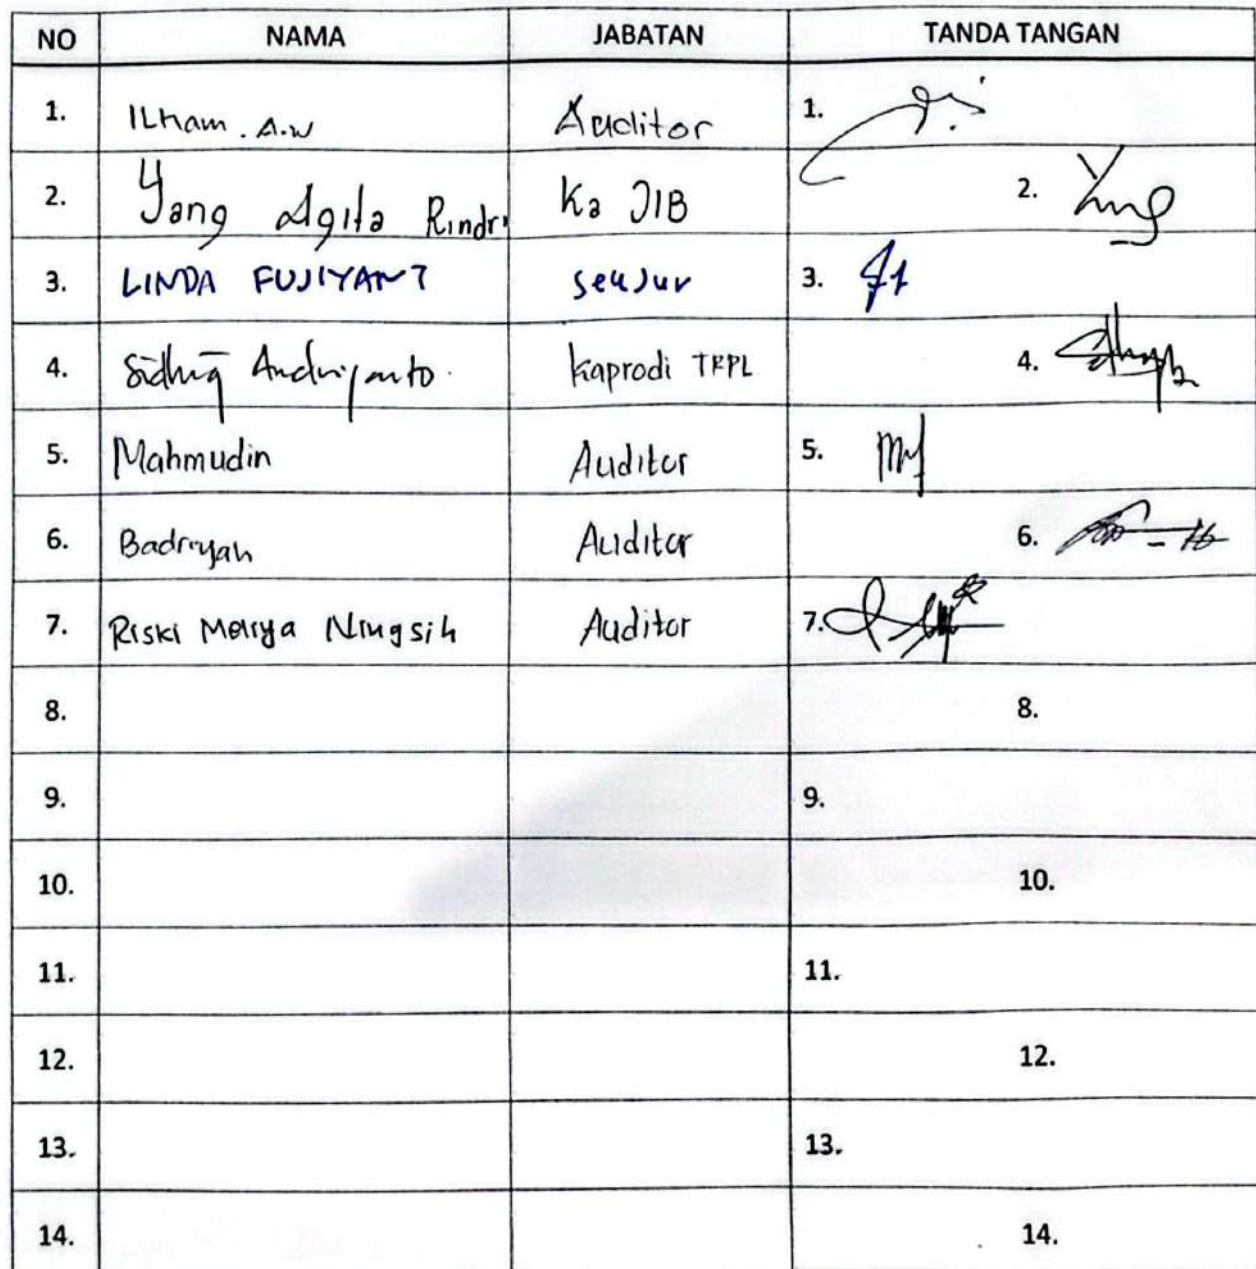 NO NAMA JABATAN TANDA TANGAN
1. ILham . A.W Auditor 1.
2. Yang Agita Rindri Ka JIB 2.
3. LINDA FUJIYANTI sekjur 3.
4. Sidhiq Andriyanto Kaprodi TRPL 4.
5. Mahmudin Auditor 5.
6. Badriyah Auditor 6.
7. Riski Meliya Ningsih Auditor 7.
8. 8.
9. 9.
10. 10.
11. 11.
12. 12.
13. 13.
14. 14.